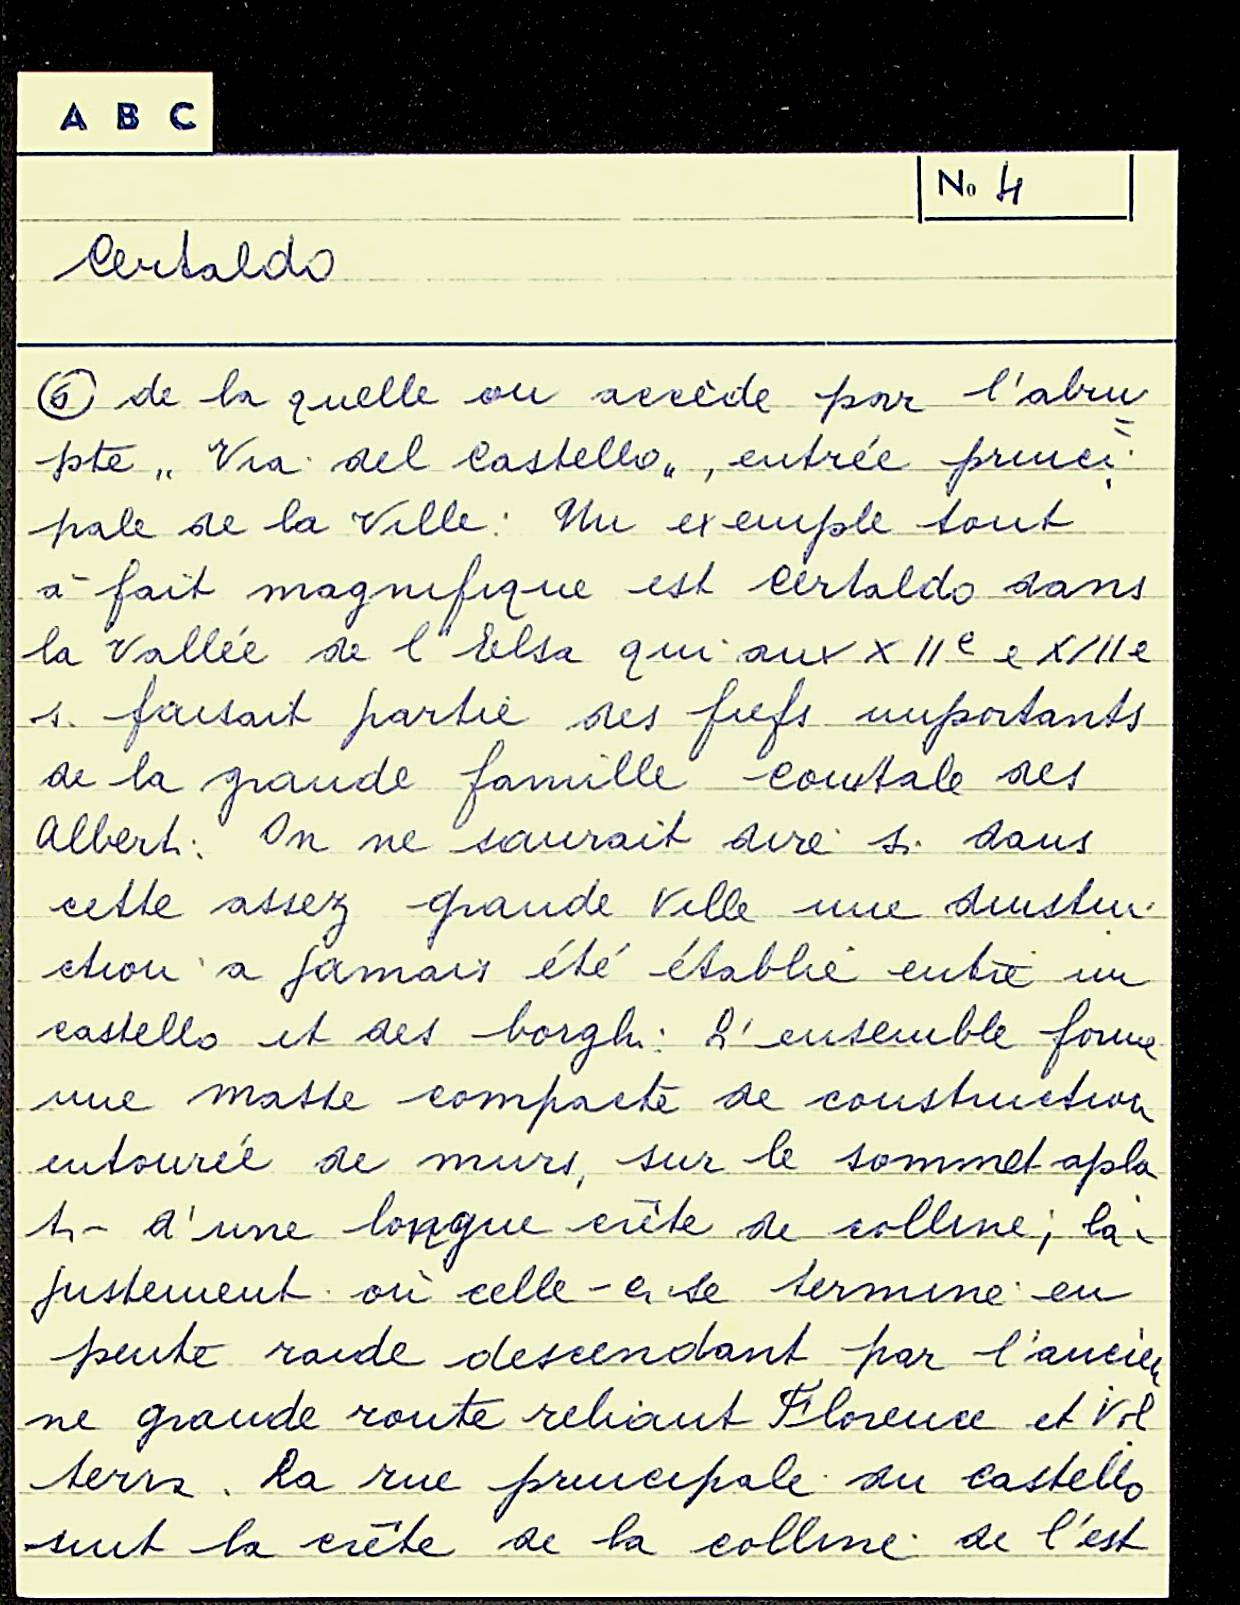 A B C
No 4
Certaldo
⑥ de la quelle on accède par l'abru=
pte „ Via del Castello„, entrée princi
pale de la Ville. Un exemple tout
à fait magnifique est Certaldo dans
la Vallée de l'Elsa qui aux XIIe e XIIIe
s. faisait partie des fiefs importants
de la grande famille comtale des
Alberti. On ne saurait dire si dans
cette assez grande Ville une distin-
ction a jamais été établie entre un
castello et des borghi. L'ensemble forme
une masse compacte de construction
entourée de murs, sur le sommet apla
ti - d'une longue crête de colline; là
justement où celle-ci se termine en
pente raide descendant par l'ancien
ne grande route reliant Florence et Vol
terra. La rue principale du castello
suit la crête de la colline de l'est